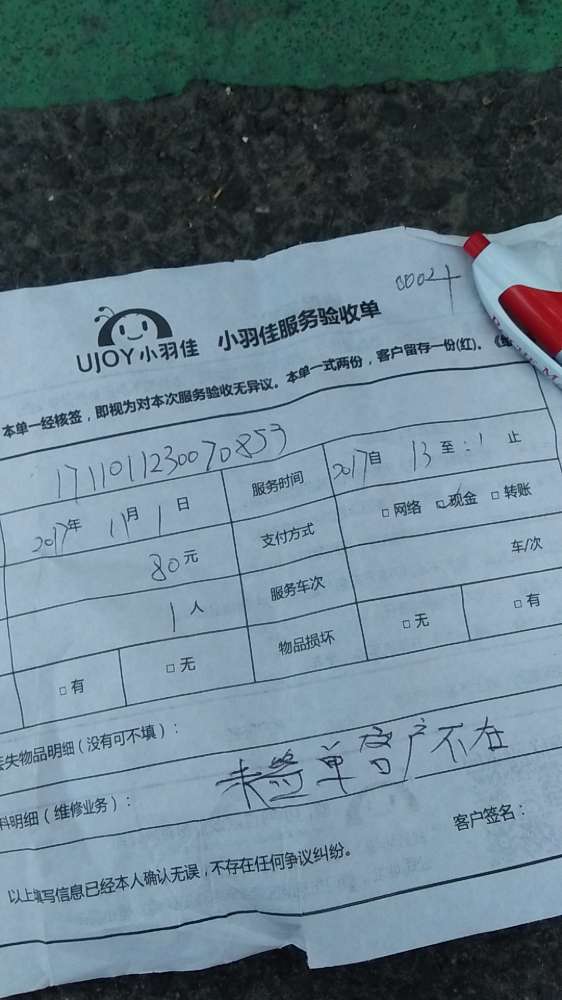 00024
UJOY小羽佳 小羽佳服务验收单
本单一经核签，即视为对本次服务验收无异议。本单一式两份，客户留存一份(红)。
1711011230070853
2017年 11月 1日 服务时间 2017自 13至 :1 止
80元 支付方式 □网络 ☑现金 □转账
1人 服务车次 车/次
□有 □无 物品损坏 □无 □有
失物品明细（没有可不填）：
未签单客户不在
料明细（维修业务）：
客户签名：
以上填写信息已经本人确认无误，不存在任何争议纠纷。